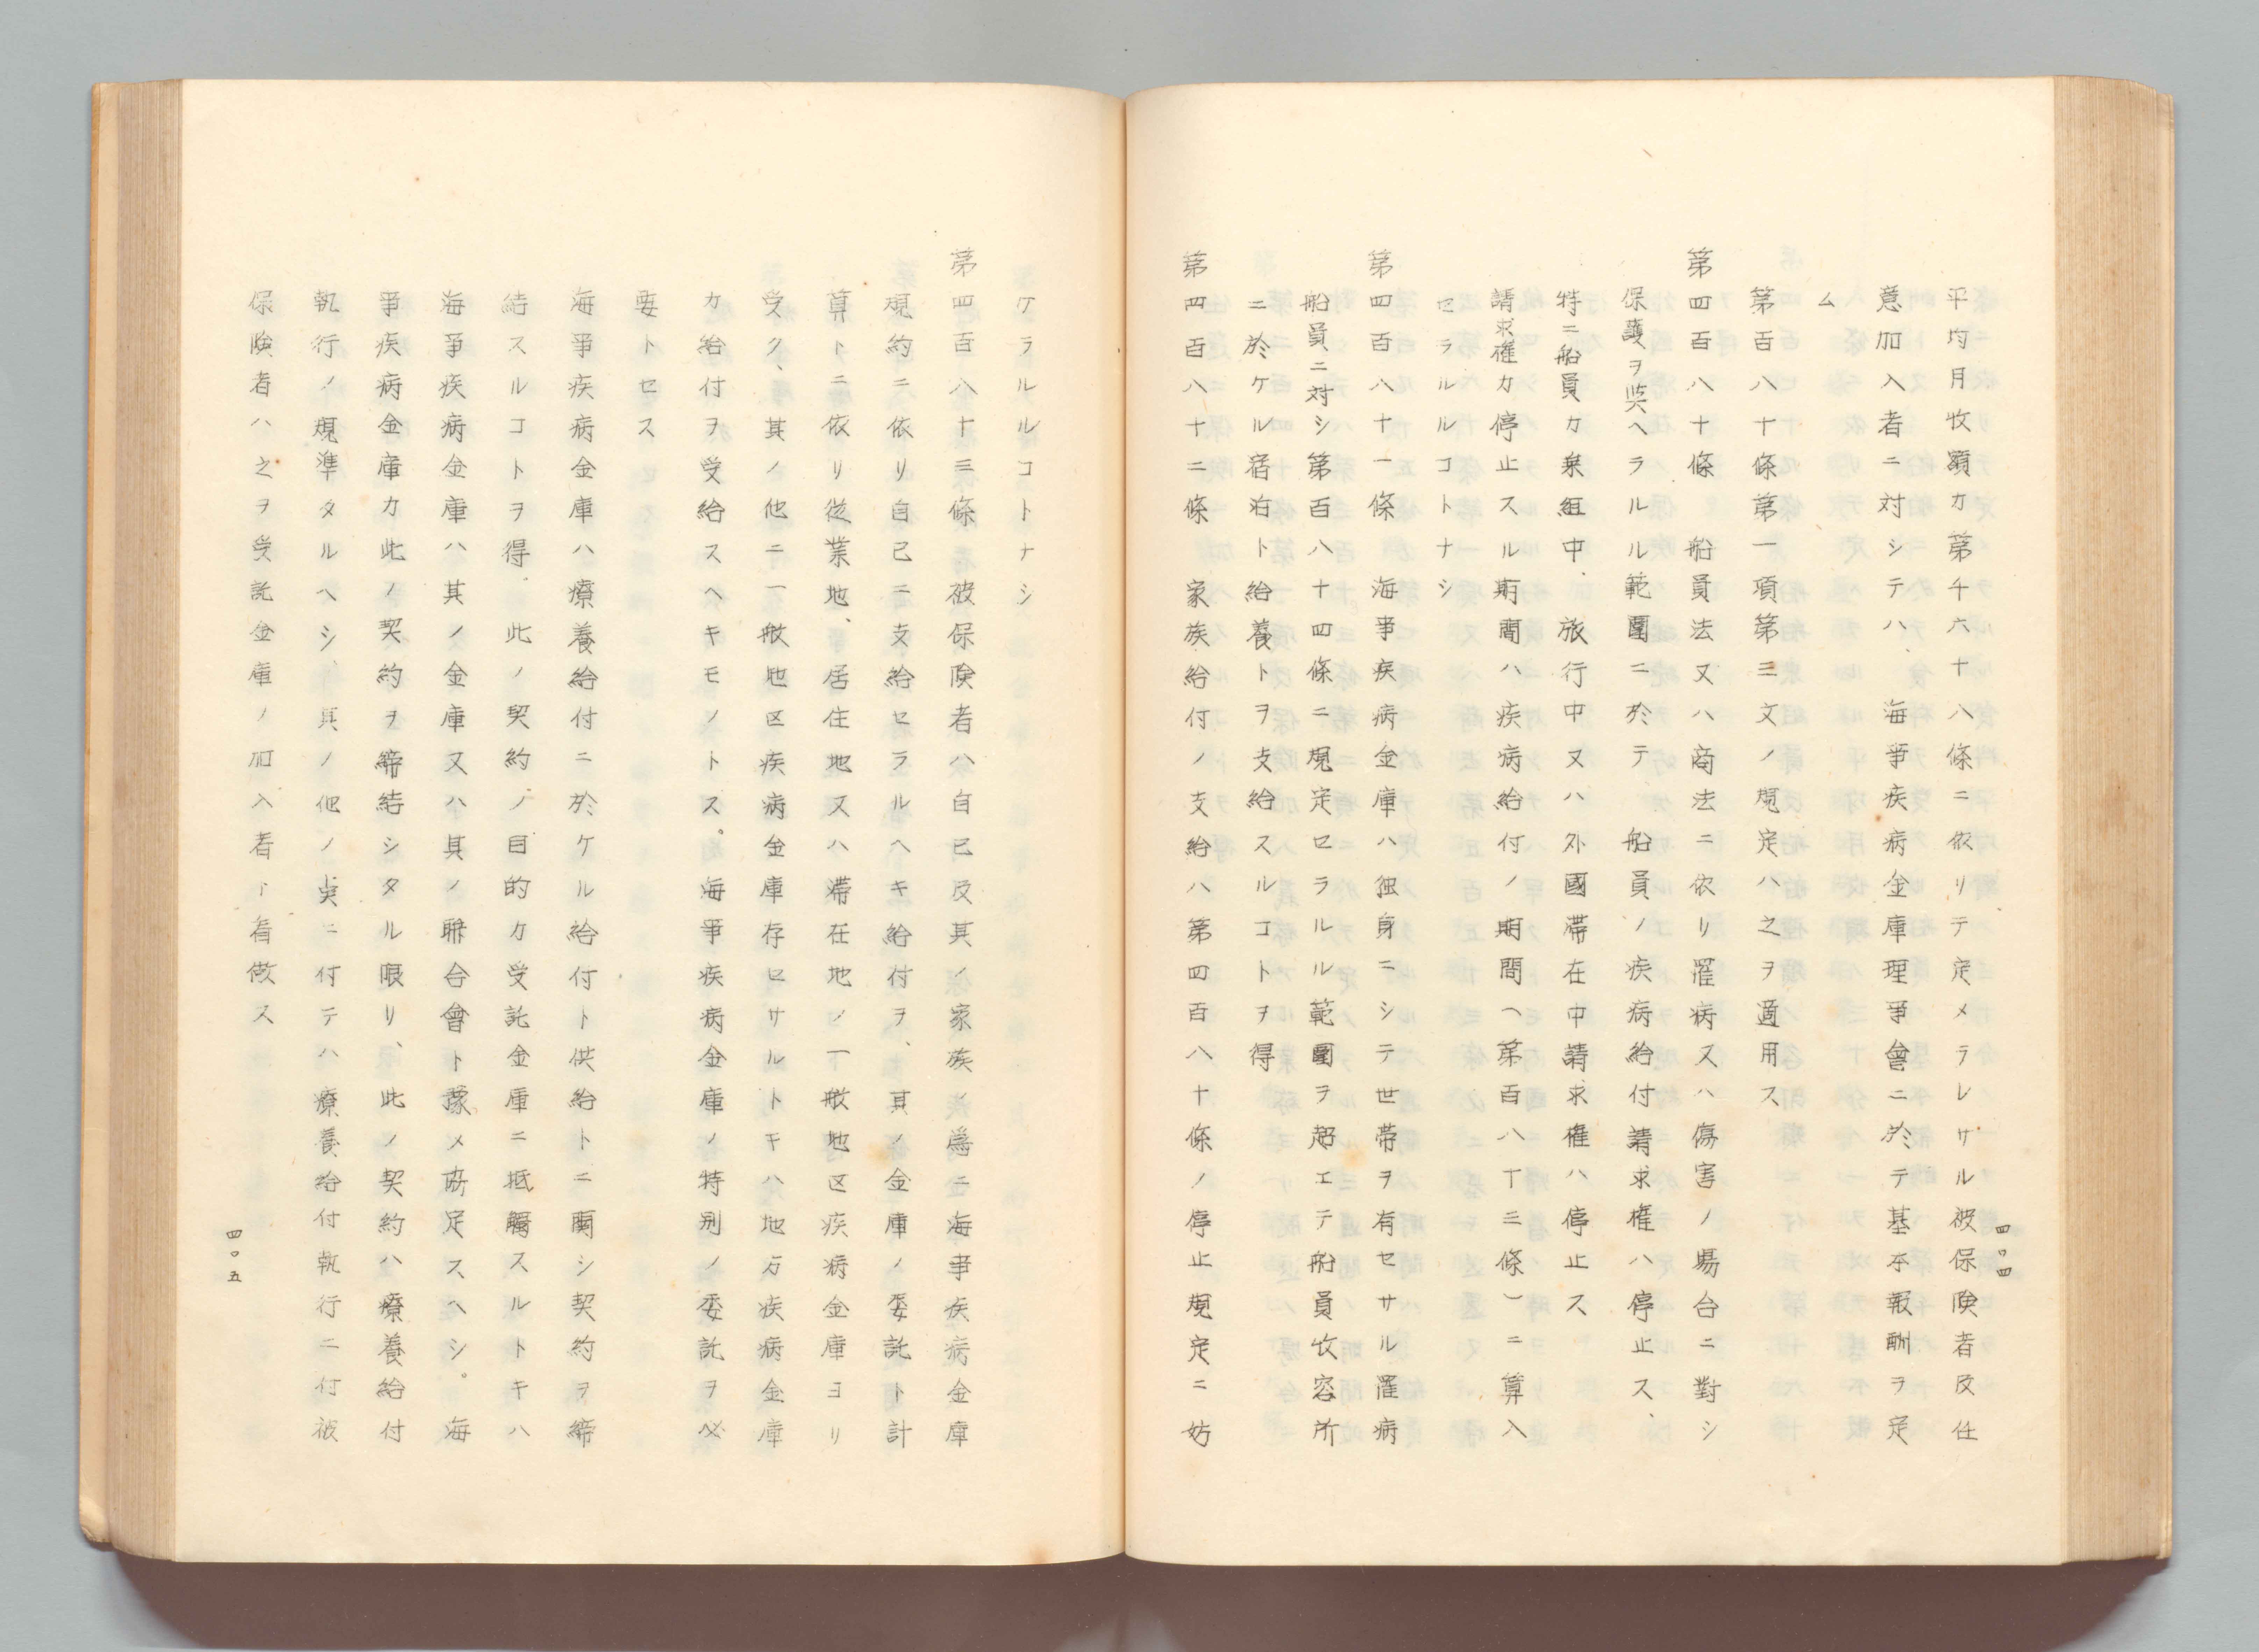 平均月收額カ第千六十八條ニ依リテ定メラレサル被保険者及任
意加入者ニ対シテハ、海事疾病金庫理事會ニ於テ基本報酬ヲ定
ム
第百八十條第一項第三文ノ規定ハ之ヲ適用ス
第四百八十條　船員法又ハ商法ニ依リ罹病又ハ傷害ノ場合ニ對シ
保護ヲ與ヘラルル範圍ニ於テ　船員ノ疾病給付請求権ハ停止ス、
特ニ船員カ乗組中、旅行中又ハ外國滞在中請求権ハ停止ス
請求権カ停止スル期間ハ疾病給付ノ期間（第百八十三條）ニ算入
セラルルコトナシ
第四百八十一條　海事疾病金庫ハ独身ニシテ世帯ヲ有セサル罹病
船員ニ対シ第百八十四條ニ規定セラルル範圍ヲ超エテ船員收容所
ニ於ケル宿泊ト給養トヲ支給スルコトヲ得
第四百八十二條　家族給付ノ支給ハ第四百八十條ノ停止規定ニ妨
四〇四
ケラルルコトナシ
第四百八十三條　被保険者ハ自己及其ノ家族ノ為ニ海事疾病金庫
規約ニ依リ自己ニ支給セラルヘキ給付ヲ、其ノ金庫ノ委託ト計
算トニ依リ従業地、居住地又ハ滞在地ノ一般地区疾病金庫ヨリ
受ク、其ノ他ニ一般地区疾病金庫存セサルトキハ地方疾病金庫
カ給付ヲ受給スヘキモノトス。海事疾病金庫ノ特別ノ委託ヲ必
要トセス
海事疾病金庫ハ療養給付ニ於ケル給付ト供給トニ関シ契約ヲ締
結スルコトヲ得、此ノ契約ノ目的カ受託金庫ニ抵觸スルトキハ
海事疾病金庫ハ其ノ金庫又ハ其ノ聯合會ト豫メ商定スヘシ。海
事疾病金庫カ此ノ契約ヲ締結シタル限リ、此ノ契約ハ療養給付
執行ノ規準タルヘシ、其ノ他ノ点ニ付テハ療養給付執行ニ付被
保険者ハ之ヲ受託金庫ノ加入者ト看做ス
四〇五